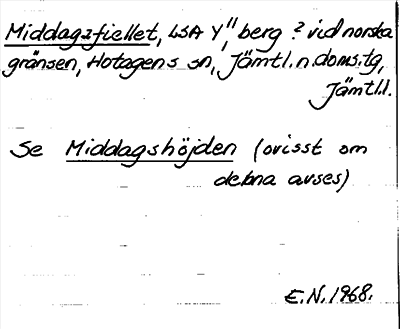 Middagsfiellet, LSA Y", berg? vid norska
gränsen, Hotagens sn, Jämtl.n.doms.tg,
Jämtl.l.
Se Middagshöjden (ovisst om
denna avses)
E.N. 1968.